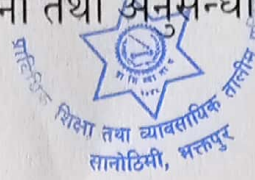 तथा अनुसन्धा
प्राविधिक शिक्षा तथा व्यावसायिक तालीम
सानोठिमी, भक्तपुर